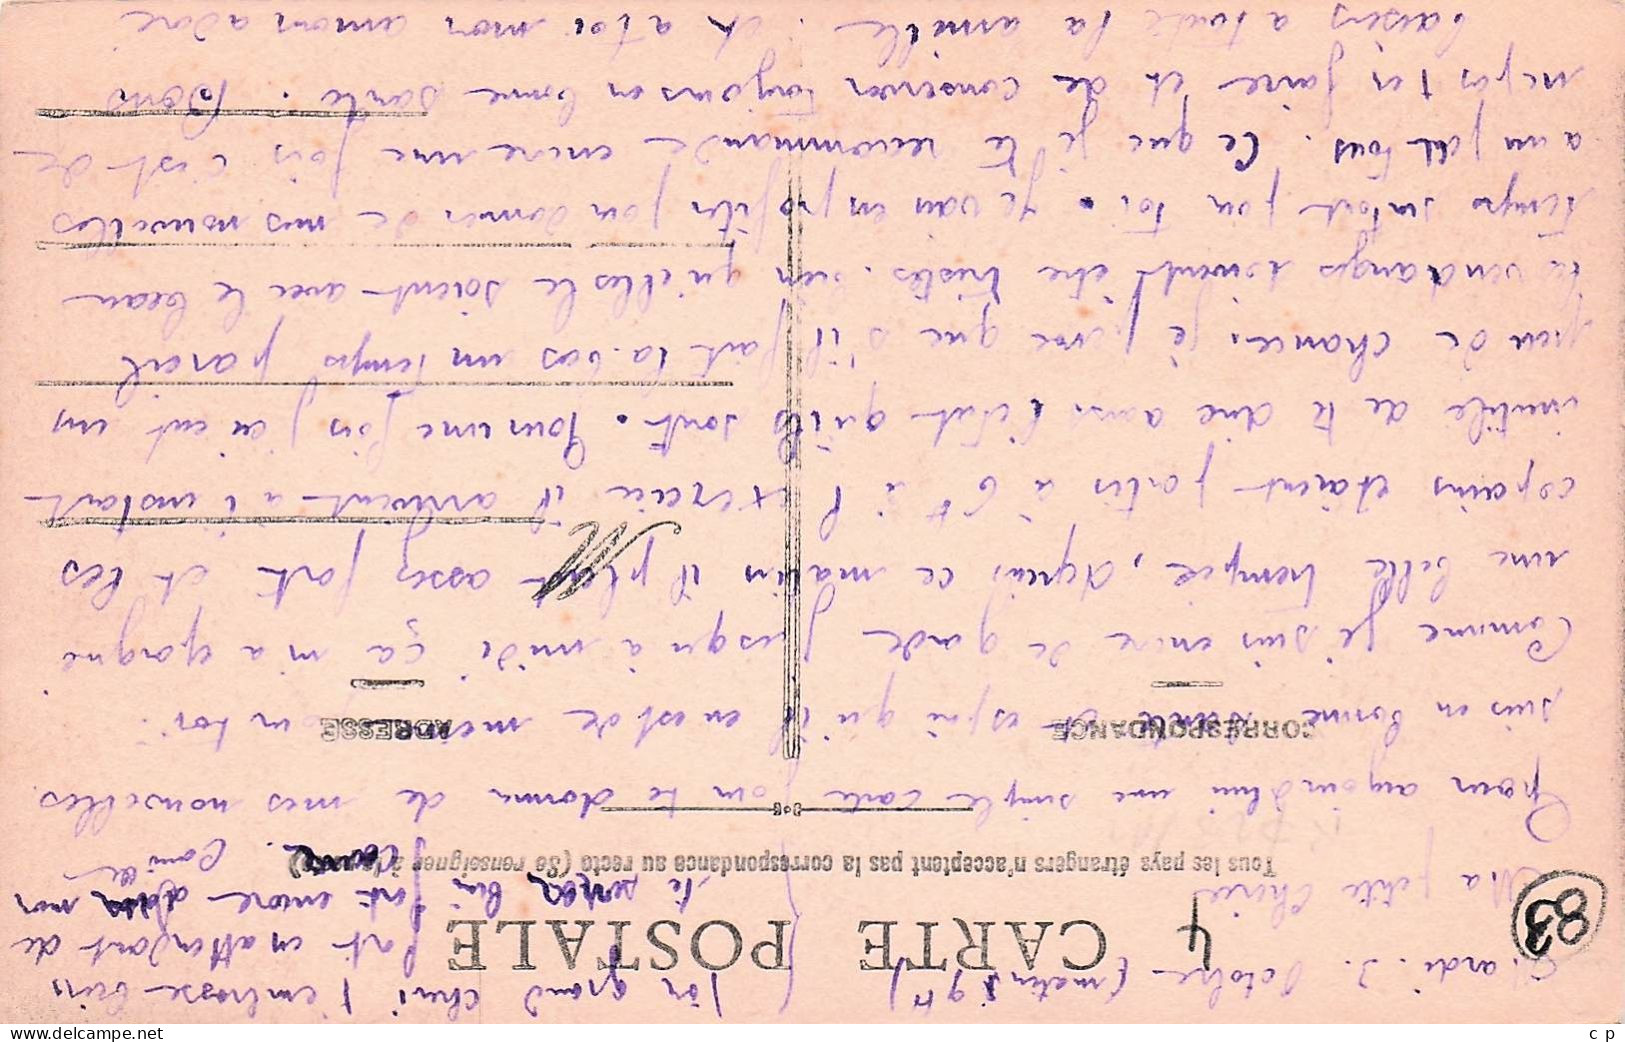 Mardi. 3. Octobre (matin 9h)
Ma petite Chérie
Pour aujourd'hui une simple carte pour te donner de mes nouvelles
suis en bonne santé et espère qu'il en est de même pour toi.
Comme je suis encore de garde jusqu'à midi ça m'a épargné
une belle trempée, depuis ce matin il pleut asses fort et les
copains étaient partis à 6h à l'exercice il arrivent à l'instant
inutile de te dire dans l'état qu'ils sont. Pour une fois j'ai eut un
peu de chance, je pense que s'il fait la-bas un temps pareil
les vendanges doivent être tristes. bien qu'elles le soient avec le beau
temps surtout pour toi. Je vais en profiter pour donner de mes nouvelles
a un peu tous. Ce que je te recommande encore une fois c'est de
ne pas t'en faire et de conserver toujours en bonne santé. Bons
baisers a toute la famille. et a toi mon amour adoré
ton grand chéri t'embrasse bien
fort en attendant de
te serrer bien fort encore dans mes
bras. Camille
CARTE POSTALE
Tous les pays étrangers n'acceptent pas la correspondance au recto (Se renseigner à la poste)
CORRESPONDANCE
ADRESSE
4
83
c p